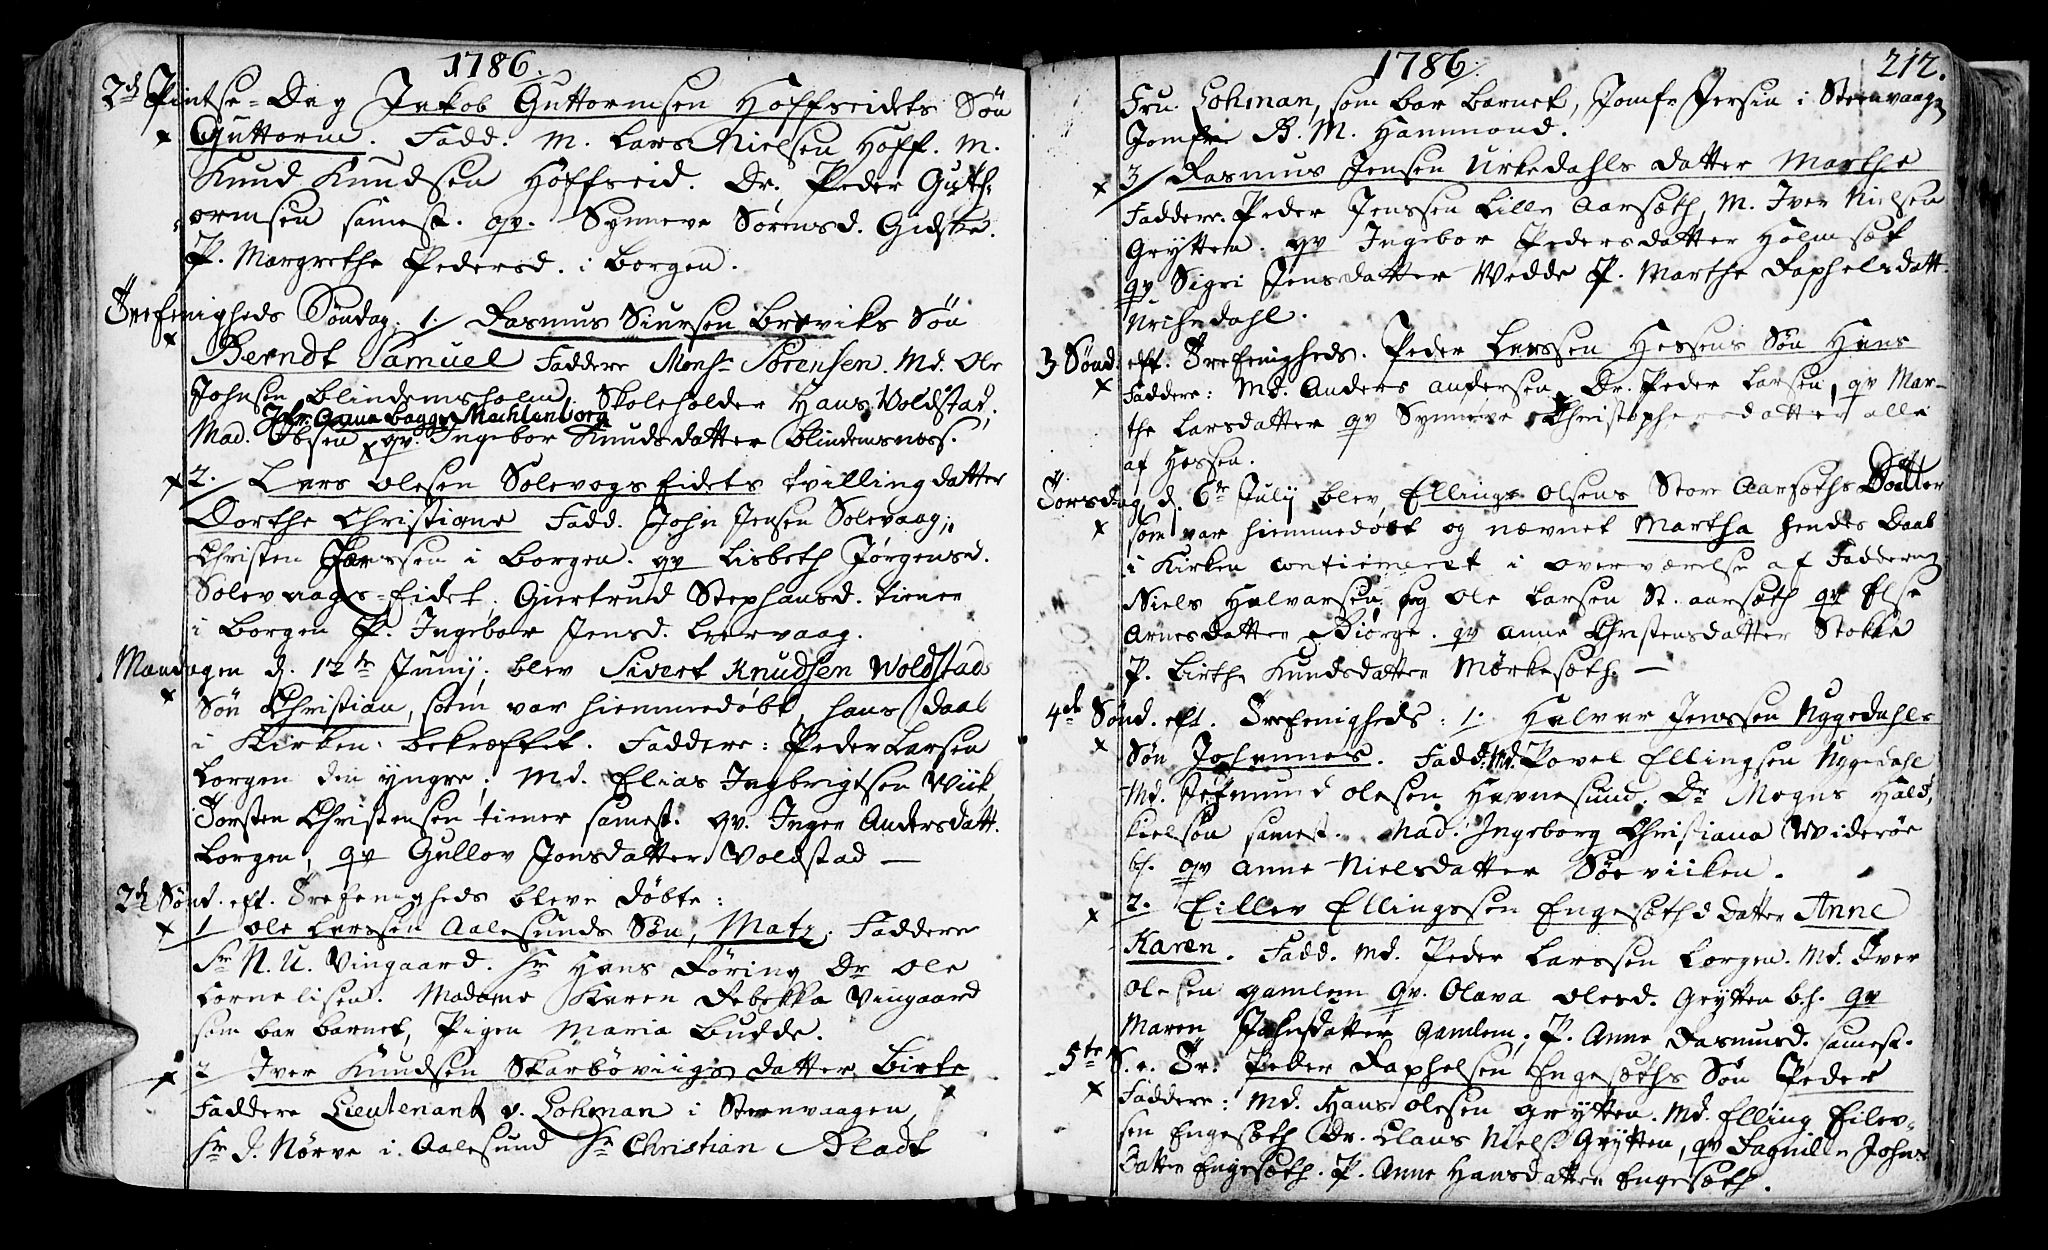 1786.
2d Pintse-Dag Jakob Guttormsen Hoffseidets Søn
Guttorm. Fadd. M. Lars Nielsen Hoff. M.
Knud Knudsen Hoffseid. Dr. Peder Gutt-
ormsen samest. qv. Synneve Sørensd. Gidske.
P. Margrethe Pedersd. i Borgen.
Trefenigheds Søndag. 1. Rasmus Siursen Breviks Søn
Berndt Samuel Faddere Monsr Sørensen. Md. Ole
Johnsen Blindemsholm. Skoleholder Hans Woldstad,
Jfr. Anna Bagge Machlenborg
Mad. Ibsen qv. Ingebor Knudsdatter Blindemsnæss.
2. Lars Olesen Solevogs Eidets tvilling datter
Dorthe Christiane Fadd. John Jensen Solevaag,
Christen Larssen i Borgen. qv Lisbeth Jørgensd.
Solevaags-Eidet, Giertrud Stephansd. tiener
i Borgen P. Ingebor Jensd. Leervaag.
Mandagen d. 12te Junij, blev Sivert Knudsen Woldstads
Søn Christian, som var hiemmedøbt, hans Daab
i Kirken bekræftet. Faddere: Peder Larsen
Borgen den yngre, Md. Elias Ingbrigtsen Wiik,
Torsten Christensen tiener samest. qv. Inger Andersdatt.
Borgen, qv Gullov Jonsdatter Voldstad —
2d Sønd. eft. Trefenigheds bleve døbte:
1 Ole Larssen Aalesunds Søn, Matz. Faddere
Sr N. U. Vingaard. Sr Hans Føring Dr Ole
Cornelisen. Madame Karen Rebekka Vingaard
som bar barnet, Pigen Maria Budde.
2 Iver Knudsen Skarbøviigs datter Birte
Faddere Lieutenant v. Lohman i Steenvaagen,
Sr J. Nørve i Aalesund Sr Christian Bladt
1786. 212.
Fru Lohman, som bar barnet, Jomfr Jersin i Steenvaagen
Jomfru B. M. Hammond.
3/ Rasmus Jensen Urkedahls datter Marthe
Faddere. Peder Jenssen Lille Aarsæth, M. Iver Nielsen
Grytten. qv Ingebor Pedersdatter Holmsæt
qv Sigri Jensdatter Vedde P. Marthe Raphelsdatt.
Urkedahl.
3 Sønd. eft. Trefenigheds. Peder Larssen Hessens Søn Hans
Faddere: Md. Anders Andersen, Dr. Peder Larsen, qv Mar-
the Larsdatter qv Synneve Christophersdatter alle
af Hessen.
Torsdag d. 6te Julij blev Ellings Olsens Store Aarsæths Datter
som var hiemmedøbt og nævnet Martha hendes Daab
i Kirken confirmeret i overværelse af Fadderne
Niels Halvarsen, og Ole Larsen St. Aarsæth qv Else
Arnesdatter Biørge. qv Anne Christensdatter Stokke
P. Birthe Knudsdatter Mørkesæth. —
4de Sønd. eft. Trefenigheds: 1. Halvar Jenssen Uggedahls
Søn Johannes. Fadd: Md. Povel Ellingsen Uggedahl
Md. Jetmund Olesen Havnesund, Dr Mogns Hald,
kielsøn samest. Mad. Ingeborg Christiana Widerøe
b. qv Anne Nielsdatter Søeviiken.
2. Eillev Ellingssen Engesæths Datter Anne
Karen. Fadd. Md. Peder Larssen Borgen. Md. Iver
Olesen Gamlem qv. Olava Olesd. Grytten b.h. qv
Maren Johnsdatter Gamlem, P. Anne Rasmusd. samest.
5te S. e. Tr. Peder Raphelsen Engesæths Søn Peder
Faddere: Md. Hans Olesen Grytten. Md. Elling Eilev-
sen Engesæth Dr. Claus Niels. Grytten, qv Dagnille Johns
Datter Engesæth. P. Anne Hansdatter Engesæth.